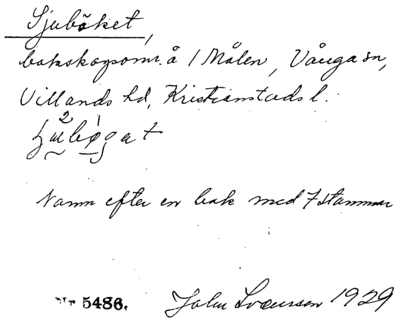 Sjuböket,
bokskogsomr. å 1 Målen, Vånga sn,
Villands hd, Kristianstads l.
Namn efter en bok med 7 stammar
Nr 5486. John Svensson 1929